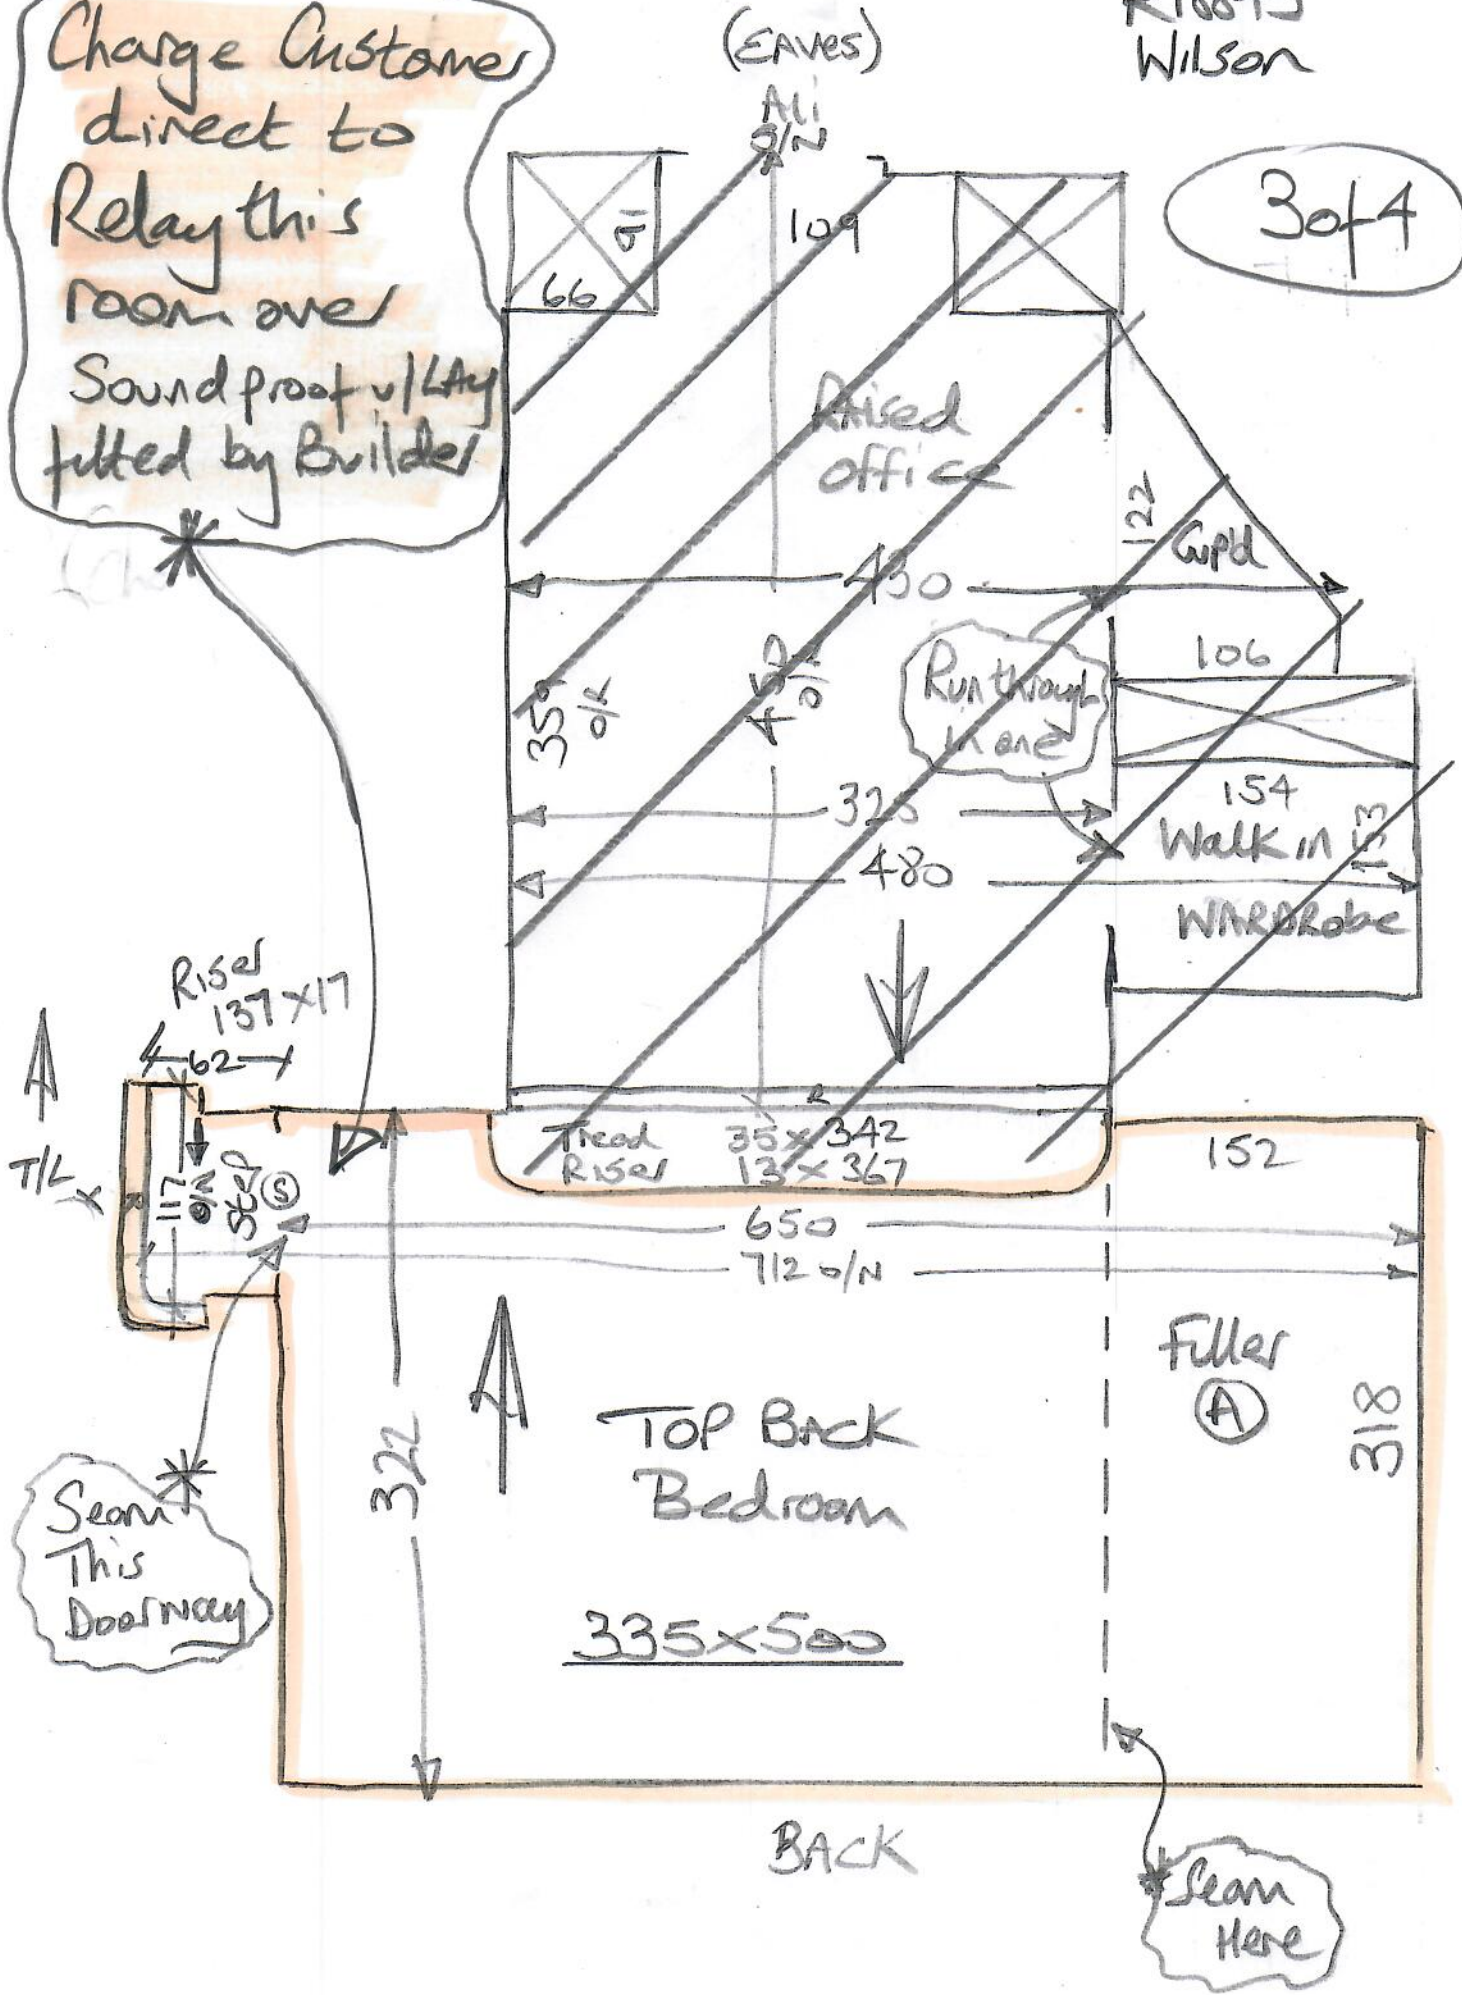 Charge Customer
direct to
Relay this
room over
Soundproof u/LAy
fitted by Builder
(EAVES)
Ali
O/N
Wilson
3 of 4
91
66
109
Raised
office
122
Cup'd
430
106
Run through
in one
359
o/R
452
o/R
154
Walk in
WARDRobe
153
480
Riser
137 x 17
62
T/L
117
O/N
Step
S
Tread 35 x 342
Riser 13 x 367
152
650
712 o/N
Filler
A
318
322
TOP BACK
Bedroom
335x500
Seam
This
Doorway
BACK
Seam
Here